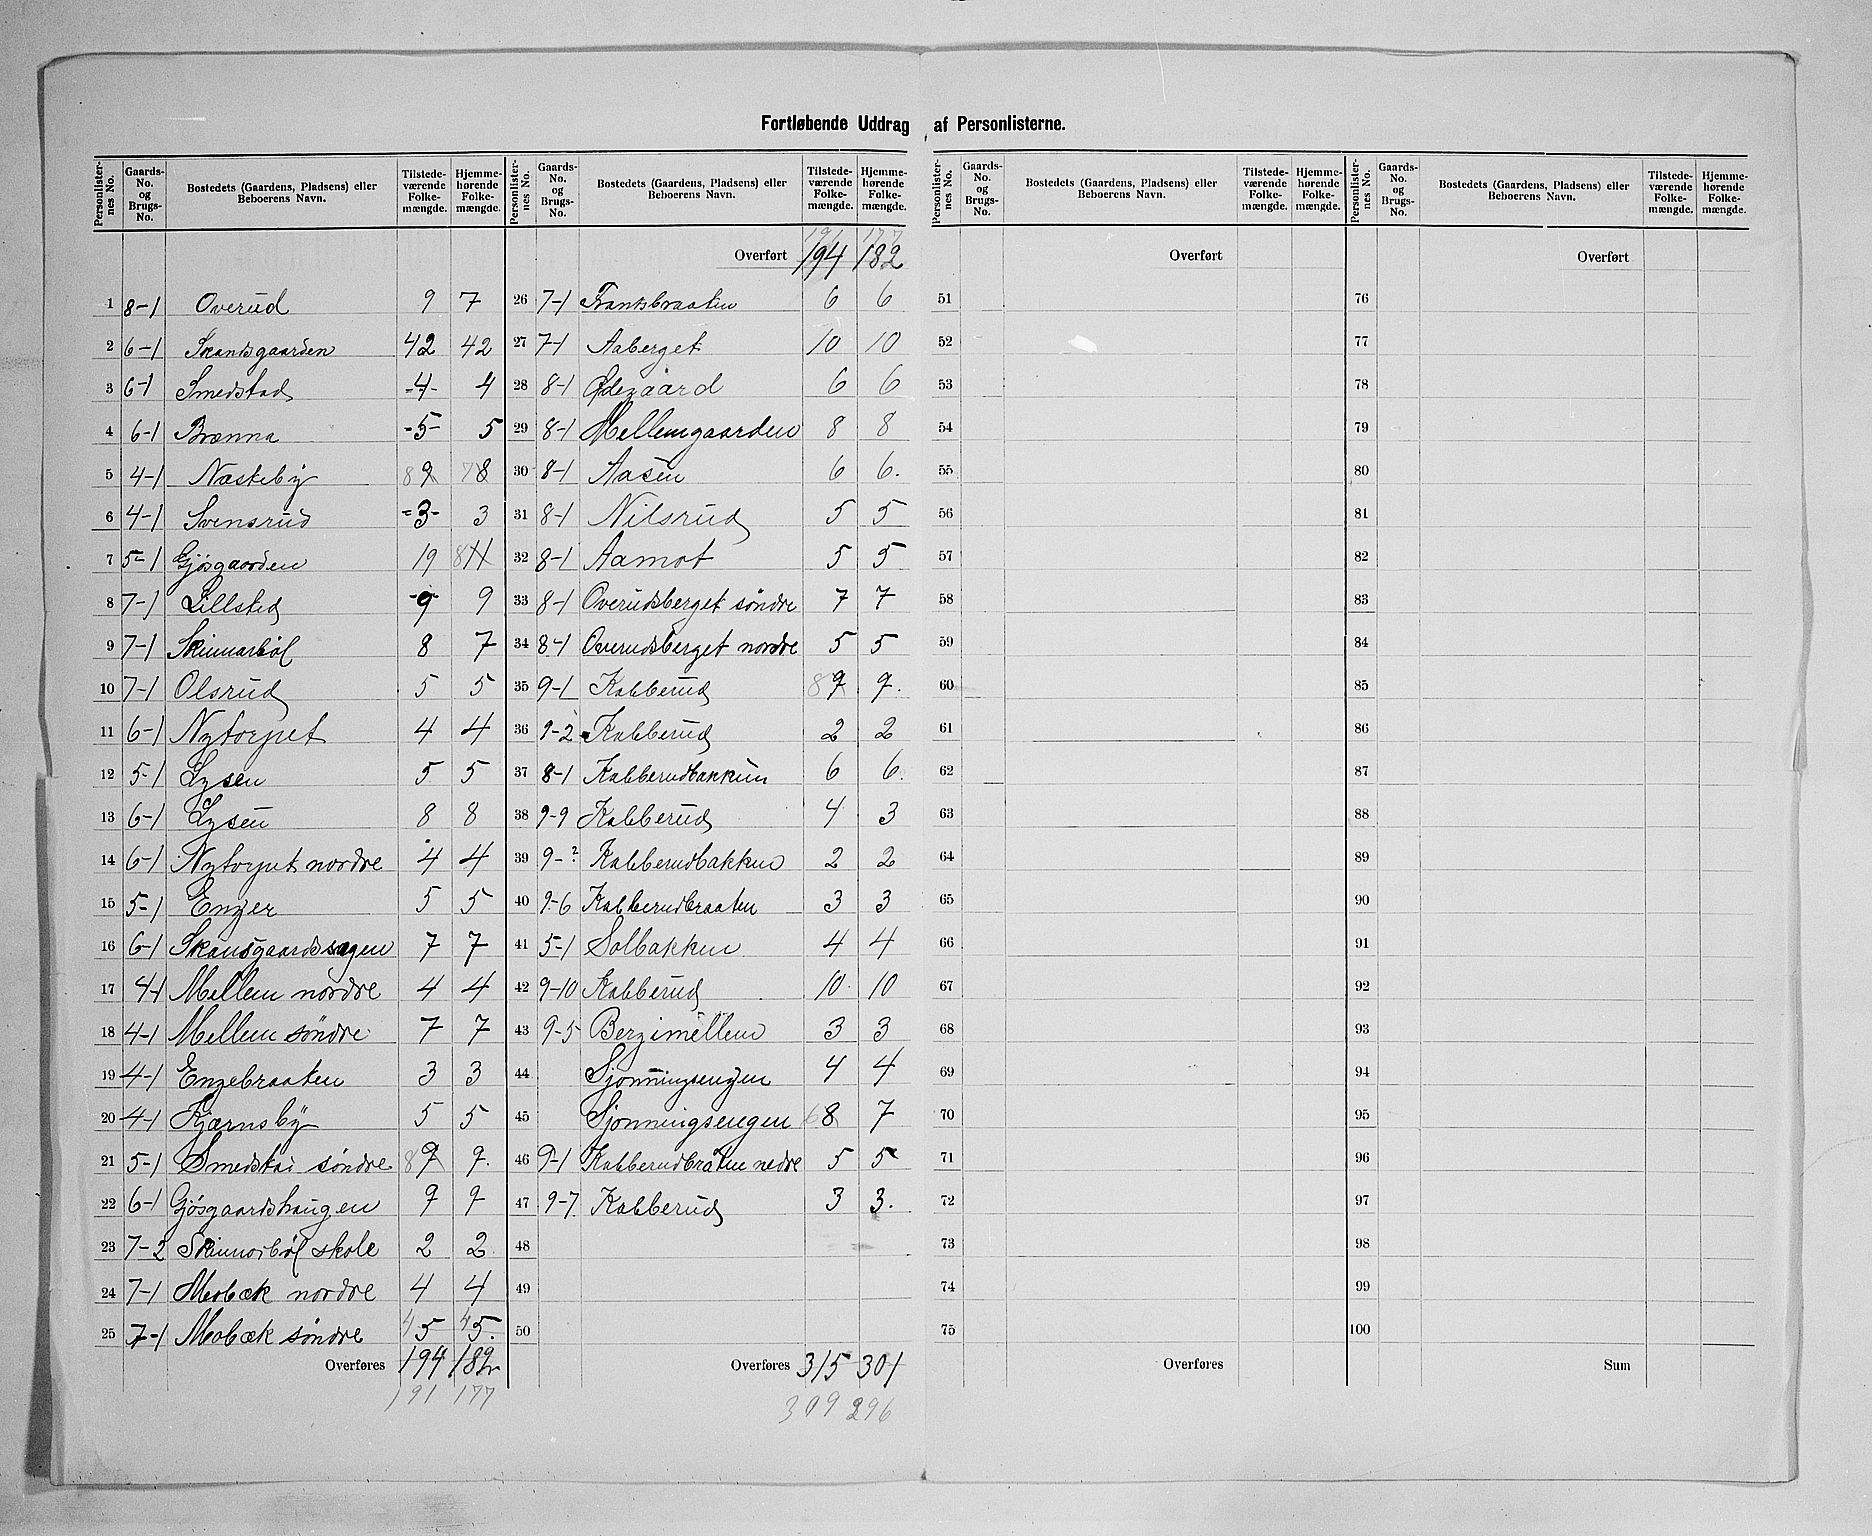 Fortløbende Uddrag af Personlisterne.
Personlister-nes No. | Gaards-No. og Brugs-No. | Bostedets (Gaardens, Pladsens) eller Beboerens Navn. | Tilstede-værende Folke-mængde. | Hjemme-hørende Folke-mængde.
1 8-1 Overud 9 7
2 6-1 Skandsgaarden 42 42
3 6-1 Smedstad -4- 4
4 6-1 Brænna -5- 5
5 4-1 Næsteby 8 9 7 8
6 4-1 Svensrud -3- 3
7 5-1 Gjøsgaarden 19 8 11
8 7-1 Lillsted -9- 9
9 7-1 Skinnarbøl 8 7
10 7-1 Olsrud 5 5
11 6-1 Nytorpet 4 4
12 5-1 Lysen 5 5
13 6-1 Lysen 8 8
14 6-1 Nytorpet nordre 4 4
15 5-1 Enger 5 5
16 6-1 Skansgaardssagen 7 7
17 4-1 Mellem nordre 4 4
18 4-1 Mellem söndre 7 7
19 4-1 Engebraaten 3 3
20 4-1 Kjærnsby 5 5
21 5-1 Smedstad söndre 8 9 9.
22 6-1 Gjøsgaardshaugen 9 9
23 7-2 Skinnarbøl skole 2 2
24 7-1 Mobæk nordre 4 4
25 7-1 Mobæk søndre 4 5 4 5.
Overføres 194 182
191 177
Personlister-nes No. | Gaards-No. og Brugs-No. | Bostedets (Gaardens, Pladsens) eller Beboerens Navn. | Tilstede-værende Folke-mængde. | Hjemme-hørende Folke-mængde.
191 177
Overført 194 182
26 7-1 Frantsbraaten 6 6
27 7-1 Aaberget 10 10
28 8-1 Ødegaard 6 6
29 8-1 Mellemgaarden 8 8
30 8-1 Aasen 6 6.
31 8-1 Nilsrud 5 5
32 8-1 Aamot 5 5
33 8-1 Overudsberget söndre 7 7
34 8-1 Overudsberget nordre 5 5
35 9-1 Kabberud 8 9 9.
36 9-2 Kabberud 2 2
37 8-1 Kabberudbakken 6 6.
38 9-9 Kabberud 4 3
39 9-? Kabberudbakken 2 2
40 9-6 Kabberudbraaten 3 3
41 5-1 Solbakken 4 4
42 9-10 Kabberud 10 10
43 9-5 Bergimellem 3 3
44 Sjönningsengen 4 4
45 Sjonningsengen 6 8 7
46 9-1 Kabberudbråten nedre 5 5
47 9-7 Kabberud 3 3.
48
49
50
Overføres 315 301
309 296
Personlister-nes No. | Gaards-No. og Brugs-No. | Bostedets (Gaardens, Pladsens) eller Beboerens Navn. | Tilstede-værende Folke-mængde. | Hjemme-hørende Folke-mængde.
Overført
51
52
53
54
55
56
57
58
59
60
61
62
63
64
65
66
67
68
69
70
71
72
73
74
75
Overføres
Personlister-nes No. | Gaards-No. og Brugs-No. | Bostedets (Gaardens, Pladsens) eller Beboerens Navn. | Tilstede-værende Folke-mængde. | Hjemme-hørende Folke-mængde.
Overført
76
77
78
79
80
81
82
83
84
85
86
87
88
89
90
91
92
93
94
95
96
97
98
99
100
Sum